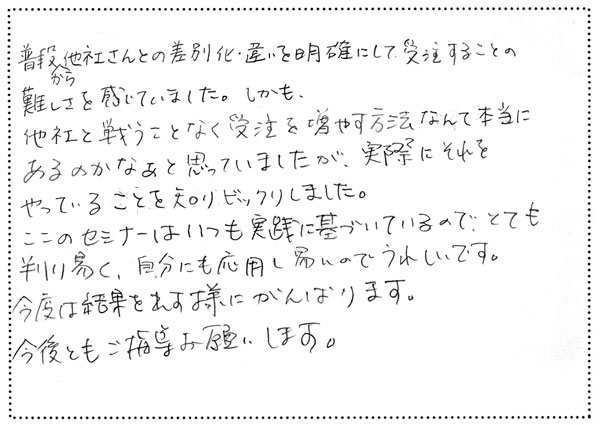 普段から他社さんとの差別化・違いを明確にして受注することの
難しさを感じていました。しかも、
他社と戦うことなく受注を増やす方法なんて本当に
あるのかなぁと思っていましたが、実際にそれを
やっていることを知りビックリしました。
ここのセミナーはいつも実践に基づいているので、とても
判り易く、自分にも応用し易いのでうれしいです。
今度は結果を出す様にがんばります。
今後ともご指導お願いします。